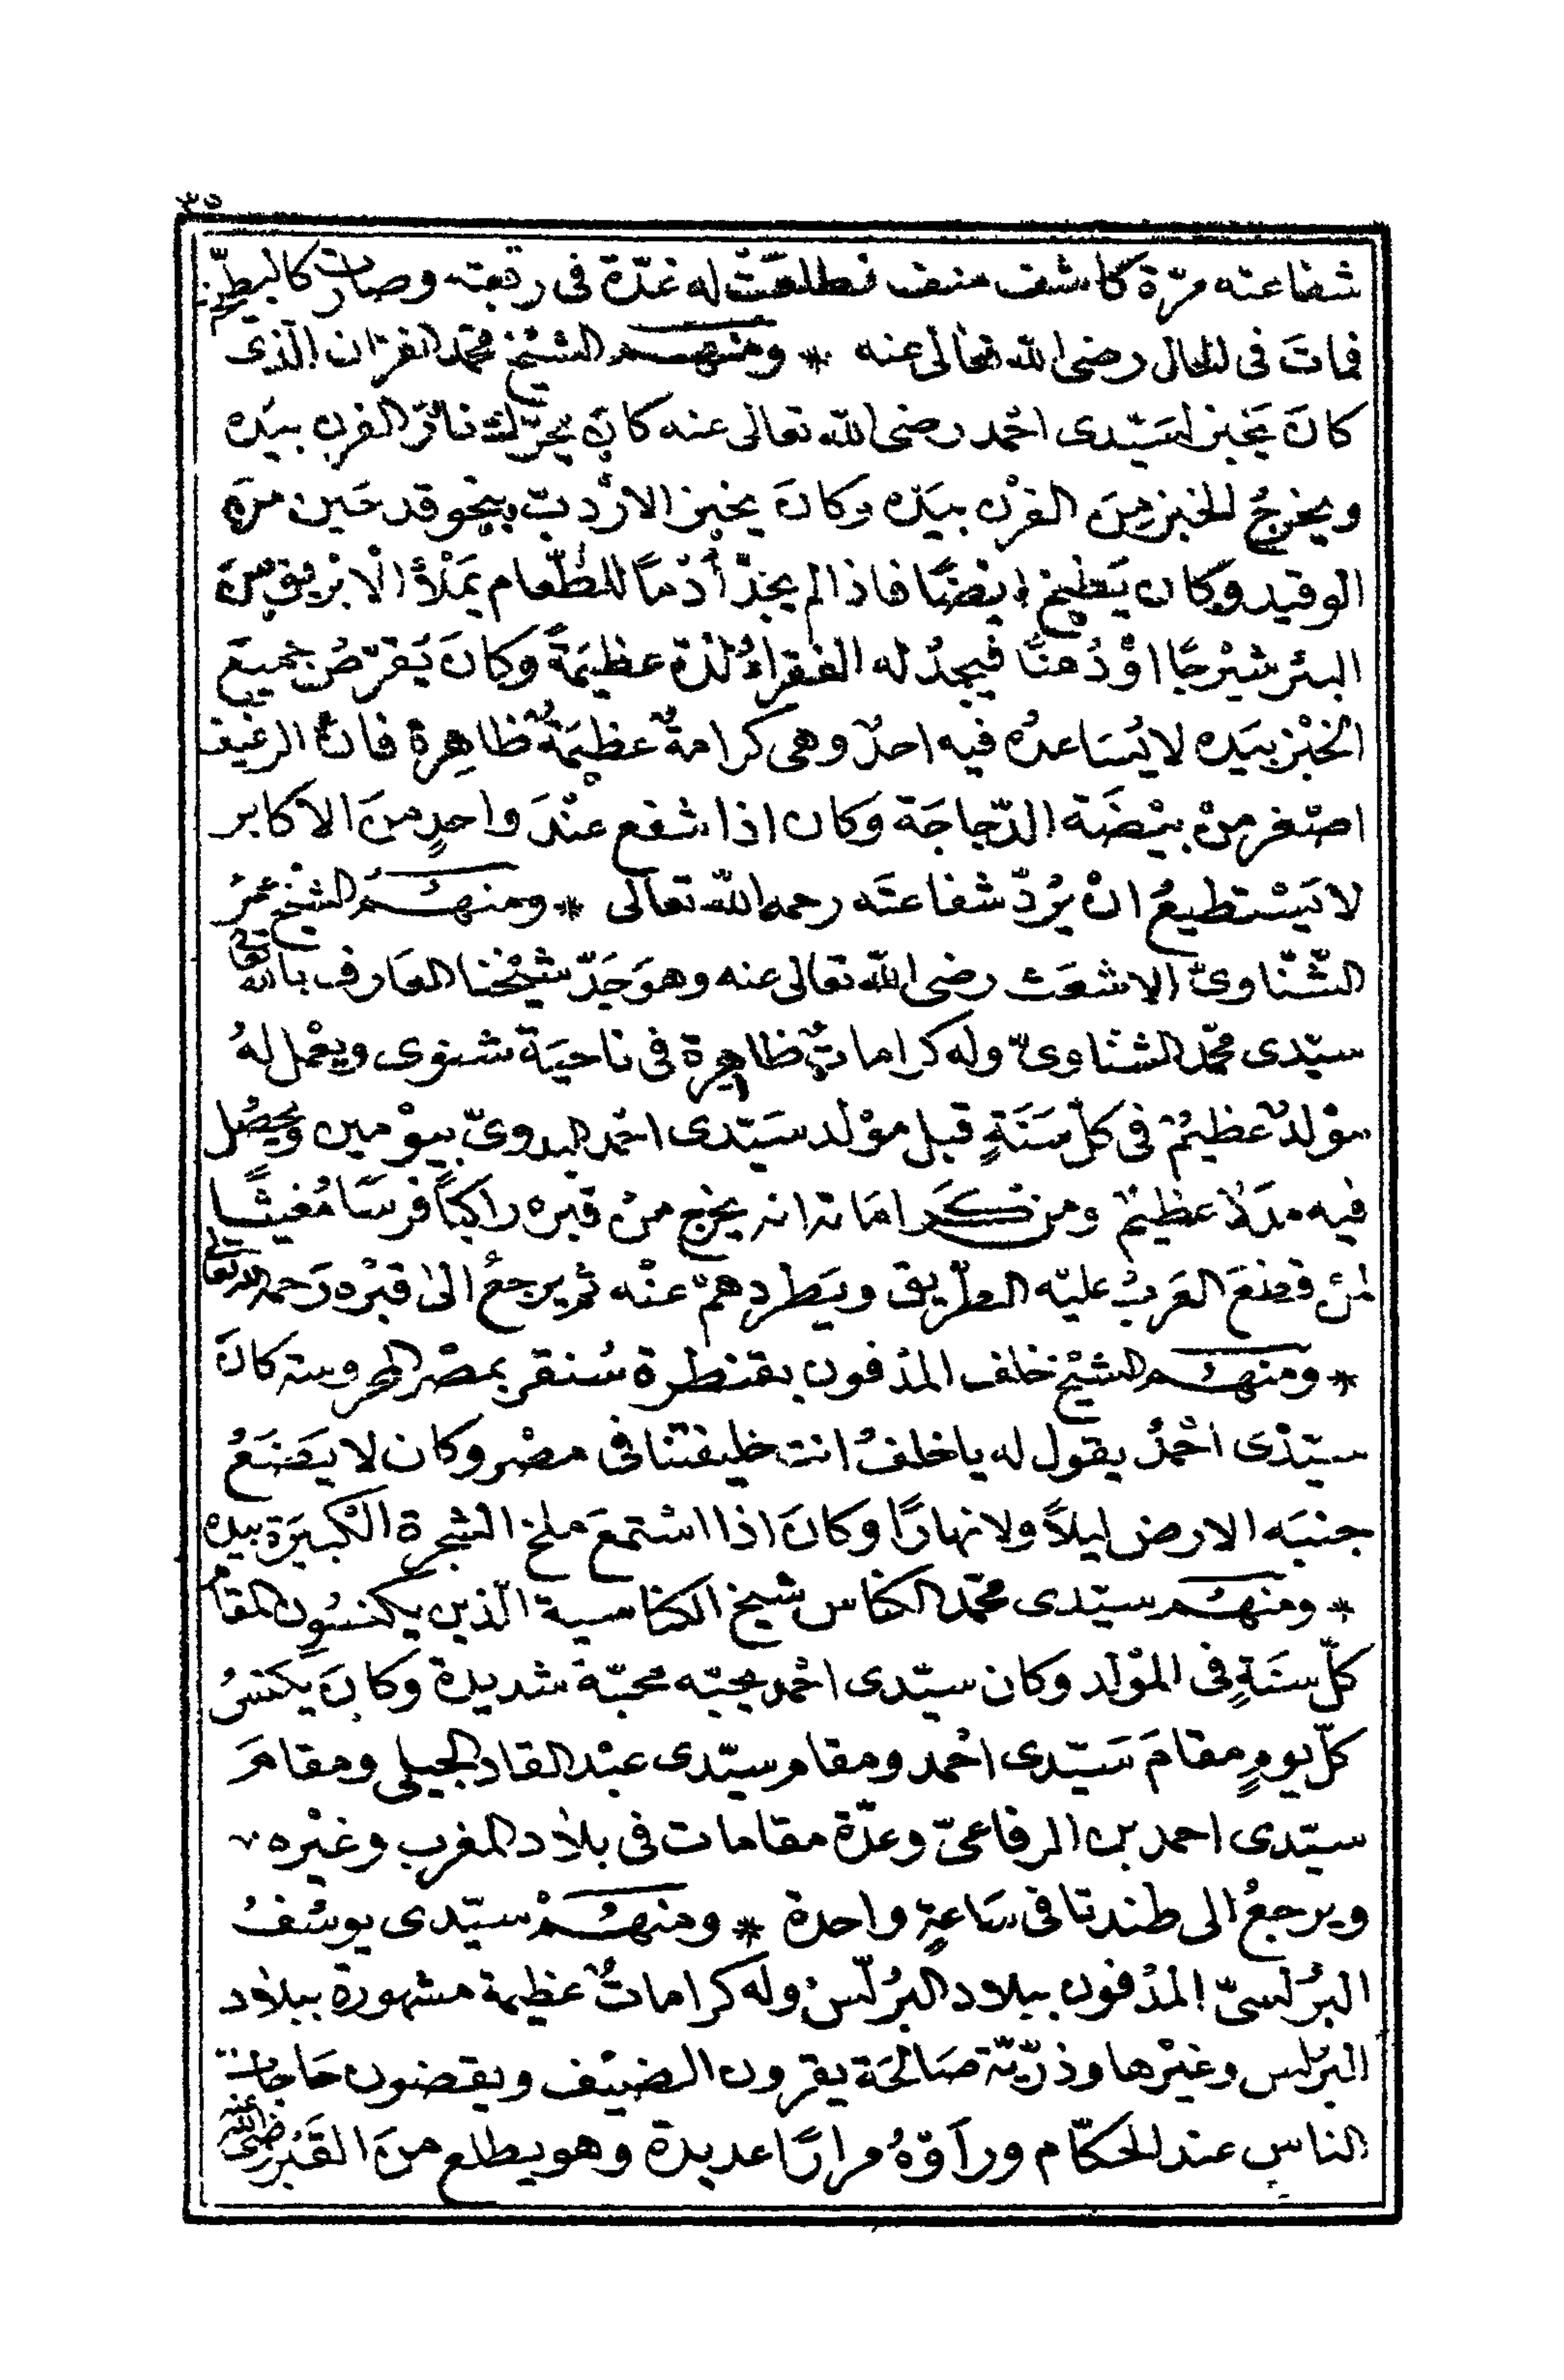 ٣٥
شفاعته مرّة كاشف منف فطلعَتْ له غدّة فى رقبته وصارت كالبطيخ
فماتَ فى الحال رضى الله تعالى عنه * ومنهم الشيخ محمّد الفرّان الّذى
كانَ يَخبز لسَيّدى احْمد رضى الله تعالى عنه كانَ يحرّك نارَ الفرن بيَده
ويخرجُ الخبز مِنَ الفرْن بيَده وكانَ يخبز الارْدبّ بنحو قدحَين منَ
الوقيد وكان يَطبخ ايْضًا فاذا لم يجدْ أُدْمًا للطّعام يَمْلأُ الْابْريق منَ
البئر شيْرجًا اوْ دُهنًا فيجدُ له الفقراءُ لذة عظيمَةً وكانَ يُقرّصُ جميعَ
الخبْز بيَده لا يُسَاعدُه فيه احدٌ وهى كرامةٌ عظيمَةٌ ظاهِرة فانّ الرغيف
اصْغر منْ بيْضَة الدّجاجَة وَكان اذا شفع عنْدَ واحدٍ منَ الاكابر
لا يَسْتطيعُ انْ يرُدّ شفاعتَه رحمه الله تعالى * ومنهُم الشيْخ عمَرُ
الشّنّاوىّ الاشعَث رضى الله تعالى عنه وهوَ جَدّ شيْخنا العَارف بالله تعالى
سيّدى محمّد الشنّاوىّ وله كراماتٌ ظاهِرة فى ناحيَة شنوى ويعْمل لهُ
موْلدٌ عظيمٌ فى كلّ سَنَةٍ قبل موْلد سَيّدى احْمد البدوىّ بيوْمين ويحصُل
فيه مدَدٌ عظيمٌ ومن كَراماته انه يخرج منْ قبره راكبًا فرسًا مُغيثًا
لمنْ قطعَ العَربُ عليْه الطّريق ويَطردهمْ عنْه ثم يرجعُ الى قبْره رَحمه الله تعالى
* ومنهُم الشيْخ خلف المدْفون بقنطرة سُنقر بمصْر المحروسة كانَ
سيّدْى احْمدُ يقول له يا خلفُ انت خليفتنا فى مصْر وكان لا يَضَعُ
جنبَه الارض ليلاً ولا نهارًا وكانَ اذا اسْتمعَ ملخ الشجرة الكبيَرة بيده
* ومنهُم سيّدى محمّد الكنّاس شيخ الكناسية الّذين يكنسُون المقام
كلّ سنَةٍ فى المَوْلد وكان سيّدى احْمد يحبّه محبّة شديدة وَكانَ يكنسُ
كلّ يومٍ مقامَ سَيّدى احْمد ومقام سيّدى عبْد القادر الجيلى ومقامَ
سيّدى احمد بن الرفاعىّ وعدّة مقامات فى بلاد المغرب وغيْره
ويرجعُ الى طندتا فى سَاعةٍ واحدة * ومنهُمْ سيّدى يوسُفُ
البُرلّسىّ المدْفون ببلاد البُرلّس وله كراماتٌ عظيمة مشهورة ببلاد
البرلس وغيْرها وذرّيّة صَالحَة يقرون الضيْف ويقضون حَاجات
الناس عند الحكّام ورآوْهُ مرارًا عديدة وهو يطلع منَ القَبْر رضى الله عنه